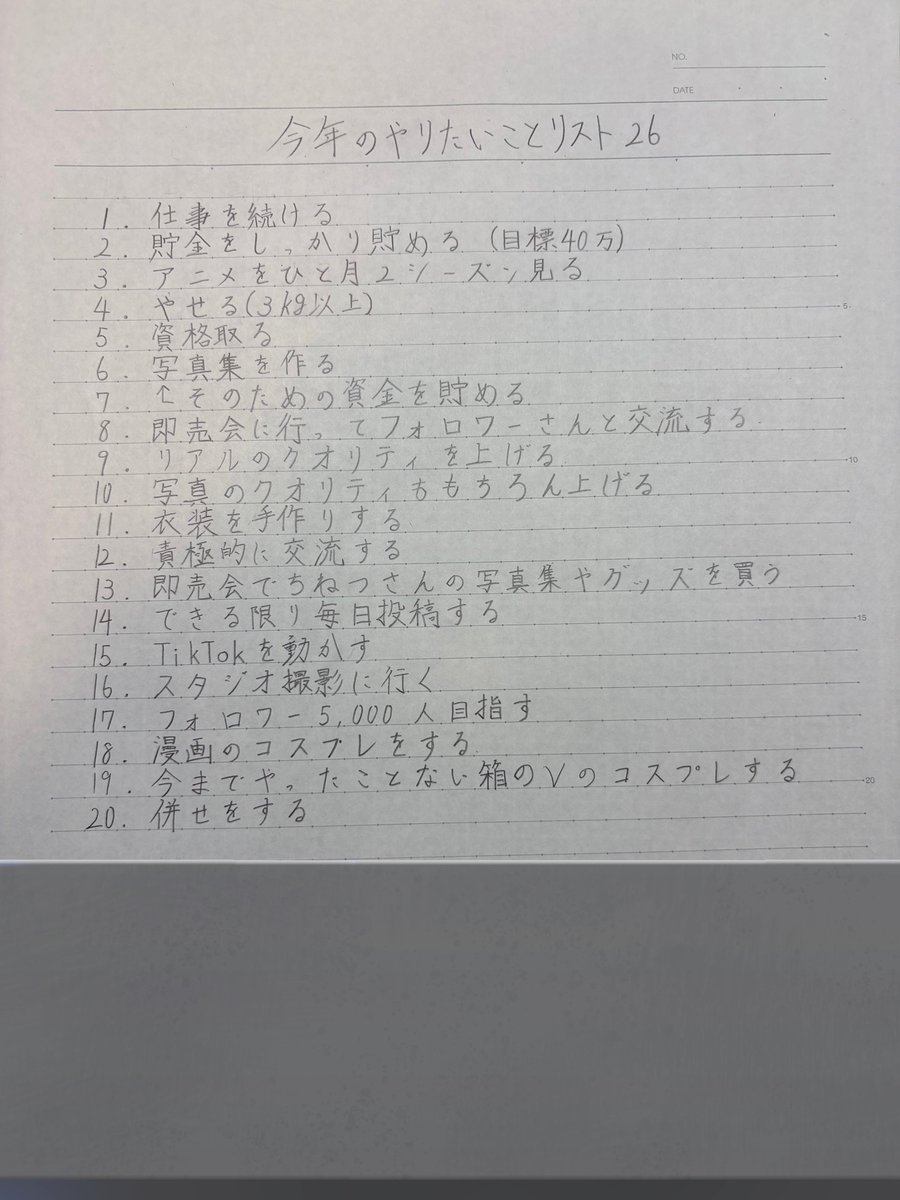 NO.
DATE
今年のやりたいことリスト26
1. 仕事を続ける
2. 貯金をしっかり貯める (目標40万)
3. アニメをひと月2シーズン見る
4. やせる(3kg以上)
5. 資格取る
5
6. 写真集を作る
7. ↑そのための資金を貯める
8. 即売会に行ってフォロワーさんと交流する
9. リアルのクオリティを上げる
10
10. 写真のクオリティももちろん上げる
11. 衣装を手作りする
12. 責極的に交流する
13. 即売会でちねつさんの写真集やグッズを買う
14. できる限り毎日投稿する
15
15. TikTokを動かす
16. スタジオ撮影に行く
17. フォロワー5,000人目指す
18. 漫画のコスプレをする
19. 今までやったことない箱のVのコスプレする
20
20. 併せをする